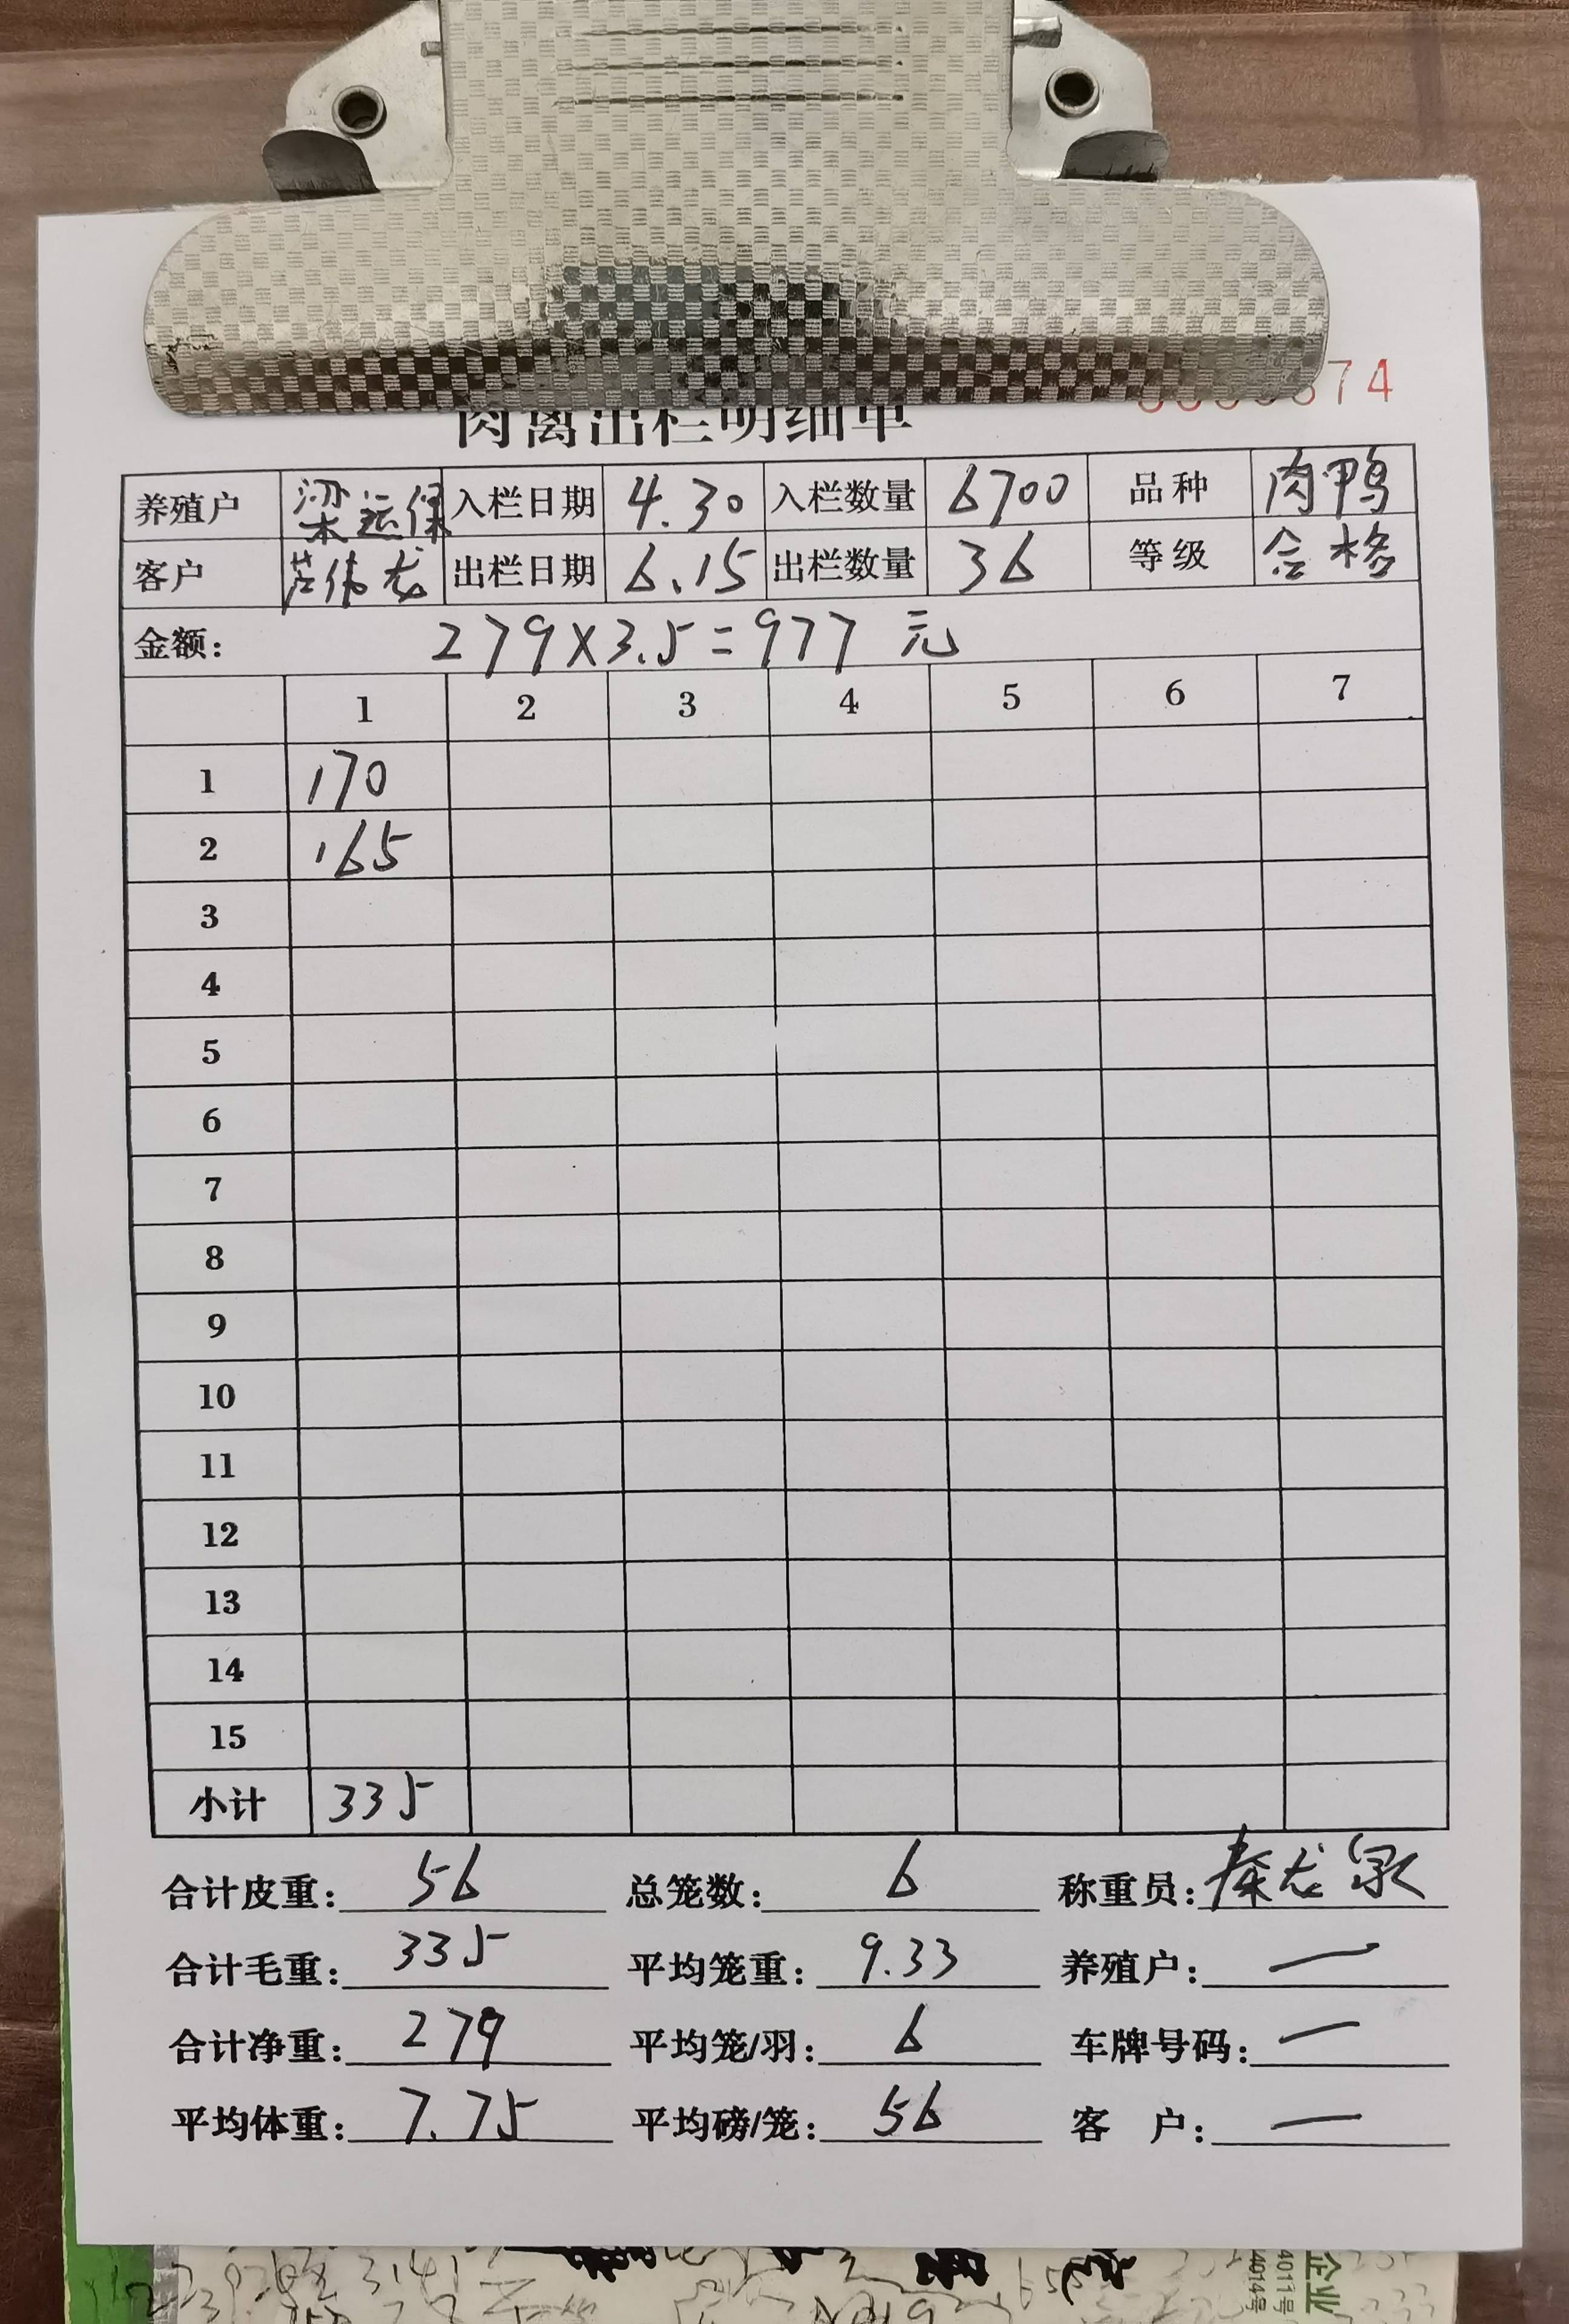 74
肉禽出栏明细单
养殖户 梁运保 入栏日期 4.30 入栏数量 6700 品种 肉鸭
客户 芦伟龙 出栏日期 6.15 出栏数量 36 等级 合格
金额： 279×3.5=977 元
1 2 3 4 5 6 7
1 170
2 165
3
4
5
6
7
8
9
10
11
12
13
14
15
小计 335
合计皮重： 56 总笼数： 6 称重员： 秦龙泉
合计毛重： 335 平均笼重： 9.33 养殖户： —
合计净重： 279 平均笼/羽： 6 车牌号码： —
平均体重： 7.75 平均磅/笼： 56 客 户： —
企业
4011号
4014号